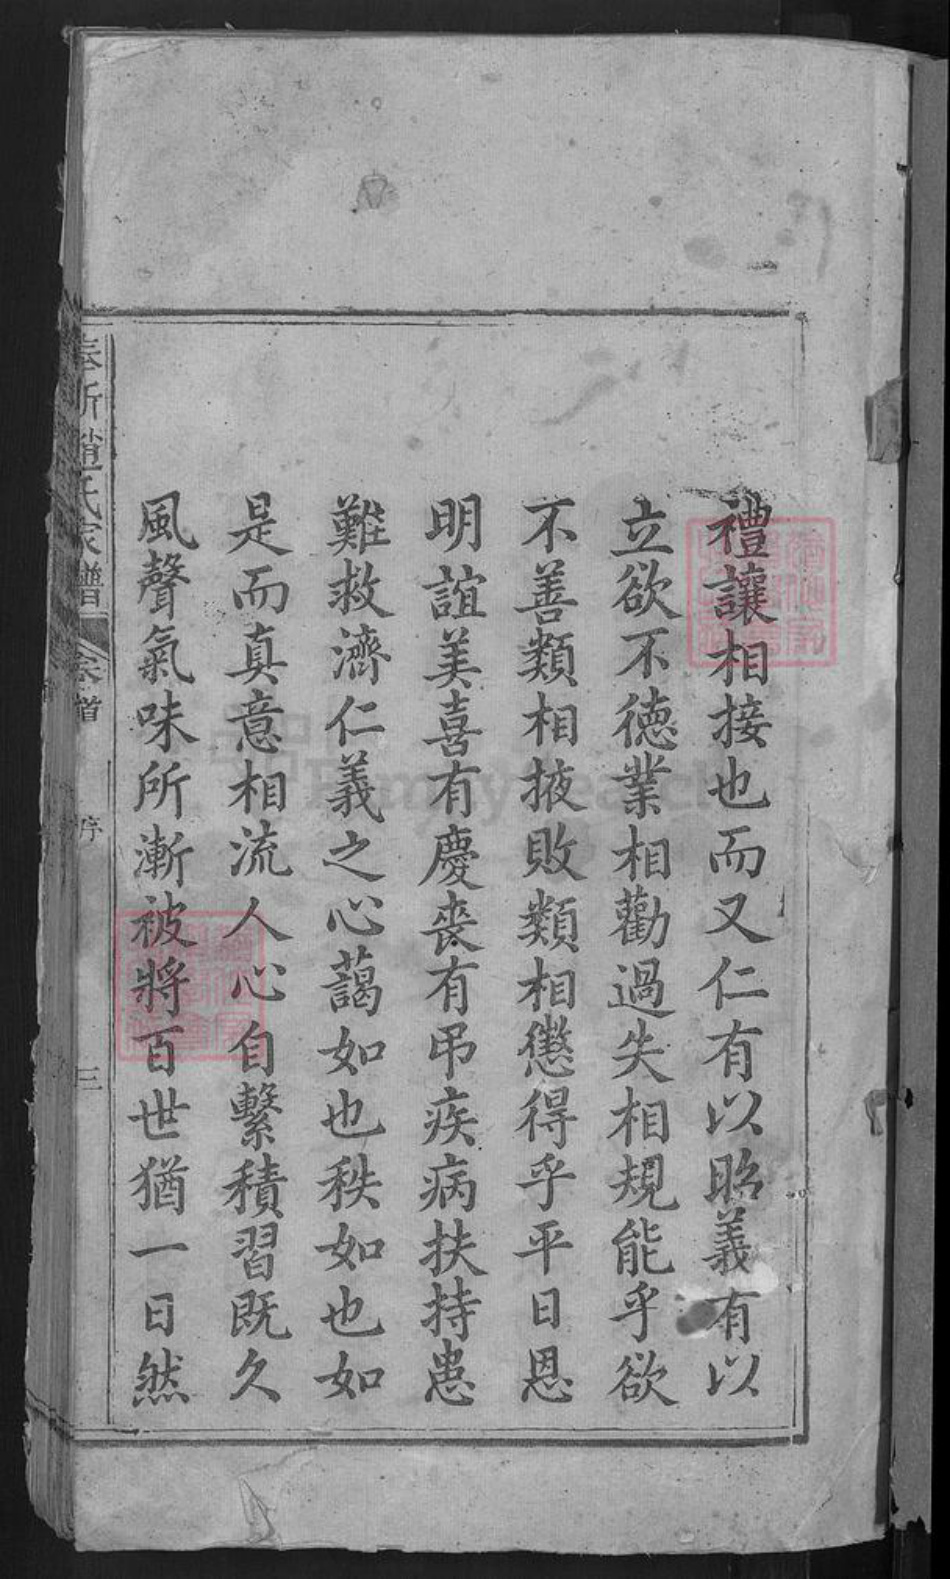 禮讓相接也而又仁有以昭義有以
立欲不德業相勸過失相規能乎欲
不善類相掖敗類相懲得乎平日恩
明誼美喜有慶喪有弔疾病扶持患
難救濟仁義之心藹如也秩如也如
是而真意相流人心自繫積習既久
風聲氣味所漸被將百世猶一日然
趙氏家譜 卷首 序 三
FamilySearch